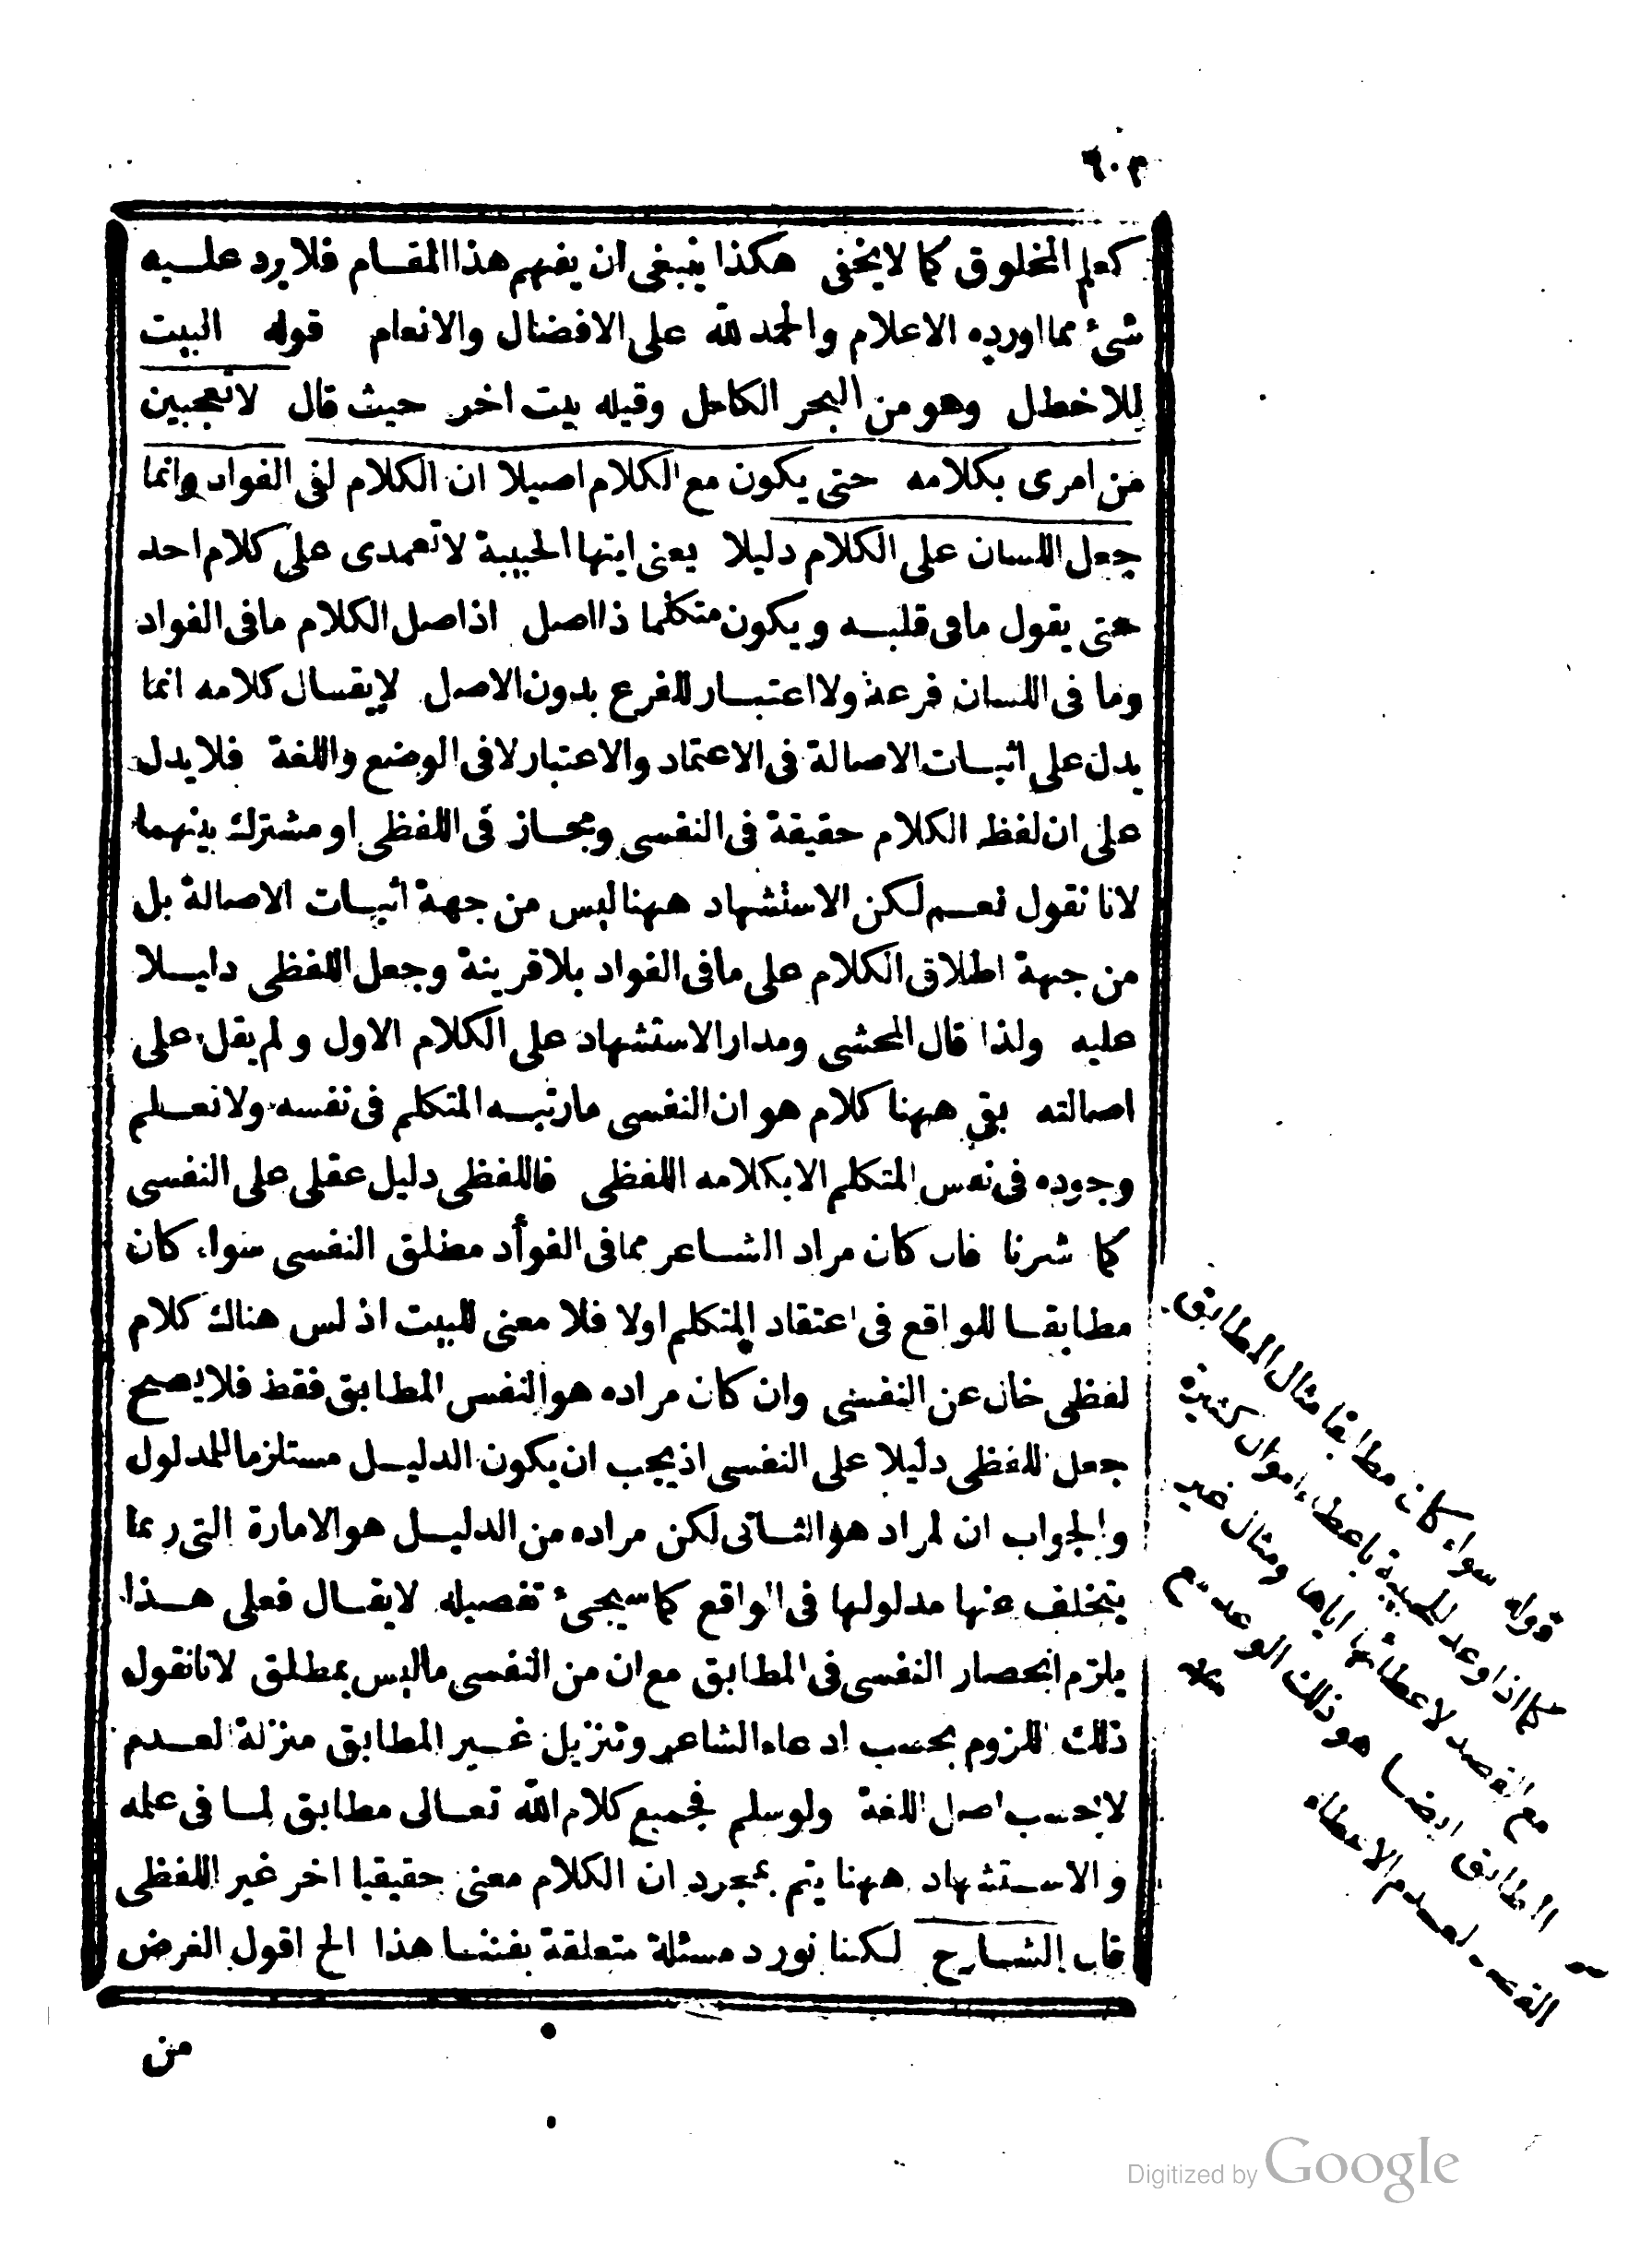 ٦٠٣
كعلم المخلوق كما لا يخفى هكذا ينبغى ان يفهم هذا المقام فلا يرد عليه
شئ مما اورده الاعلام والحمد لله على الافضال والانعام قوله البيت
للاخطل وهو من البحر الكامل وقبله بيت اخر حيث قال لا تعجبين
من امرى بكلامه حتى يكون مع الكلام اصيلا ان الكلام لفى الفواد وانما
جعل اللسان على الكلام دليلا يعنى ايتها الحبيبة لا تعمدى على كلام احد
حتى يقول ما فى قلبه ويكون متكلما ذا اصل اذ اصل الكلام ما فى الفواد
وما فى اللسان فرعه ولا اعتبار للفرع بدون الاصل لا يقال كلامه انما
يدل على اثبات الاصالة فى الاعتماد والاعتبار لا فى الوضع واللغة فلا يدل
على ان لفظ الكلام حقيقة فى النفسى ومجاز فى اللفظى او مشترك بينهما
لانا نقول نعم لكن الاستشهاد ههنا ليس من جهة اثبات الاصالة بل
من جهة اطلاق الكلام على ما فى الفواد بلا قرينة وجعل اللفظى دليلا
عليه ولذا قال المحشى ومدار الاستشهاد على الكلام الاول ولم يقل على
اصالته بقى ههنا كلام هو ان النفسى ما رتبه المتكلم فى نفسه ولا نعلم
وجوده فى نفس المتكلم الا بكلامه اللفظى فاللفظى دليل عقلى على النفسى
كما شرنا فان كان مراد الشاعر مما فى الفوأد مطلق النفسى سواء كان
مطابقا للواقع فى اعتقاد المتكلم اولا فلا معنى للبيت اذ لس هناك كلام
لفظى خال عن النفسى وان كان مراده هو النفس المطابق فقط فلا يصح
جعل للفظى دليلا على النفسى اذ يجب ان يكون الدليل مستلزما للمدلول
والجواب ان لمراد هو الثانى لكن مراده من الدليل هو الامارة التى ربما
يتخلف عنها مدلولها فى الواقع كما سيجئ تفصيله لا يقال فعلى هذا
يلزم انحصار النفسى فى المطابق مع ان من النفسى ما ليس بمطلق لانا نقول
ذلك للزوم بحسب ادعاء الشاعر وتنزيل غير المطابق منزلة لعدم
لا بحسب اصل اللغة ولو سلم فجميع كلام الله تعالى مطابق لما فى علمه
والاستشهاد ههنا يتم بمجرد ان الكلام معنى حقيقيا اخر غير اللفظى
قال الشارح لكنا نورد مسئلة متعلقة بفننا هذا الخ اقول الغرض
من
قوله سواء كان مطابقا مثال المطابق
كما اذا وعد للحبيبة باعطاء اموال كثيرة
مع القصد لاعطائها اياها ومثال غير
المطابق ايضا هو ذلك الوعد مع
القصد لعدم الاعطاء
منه
Digitized by Google